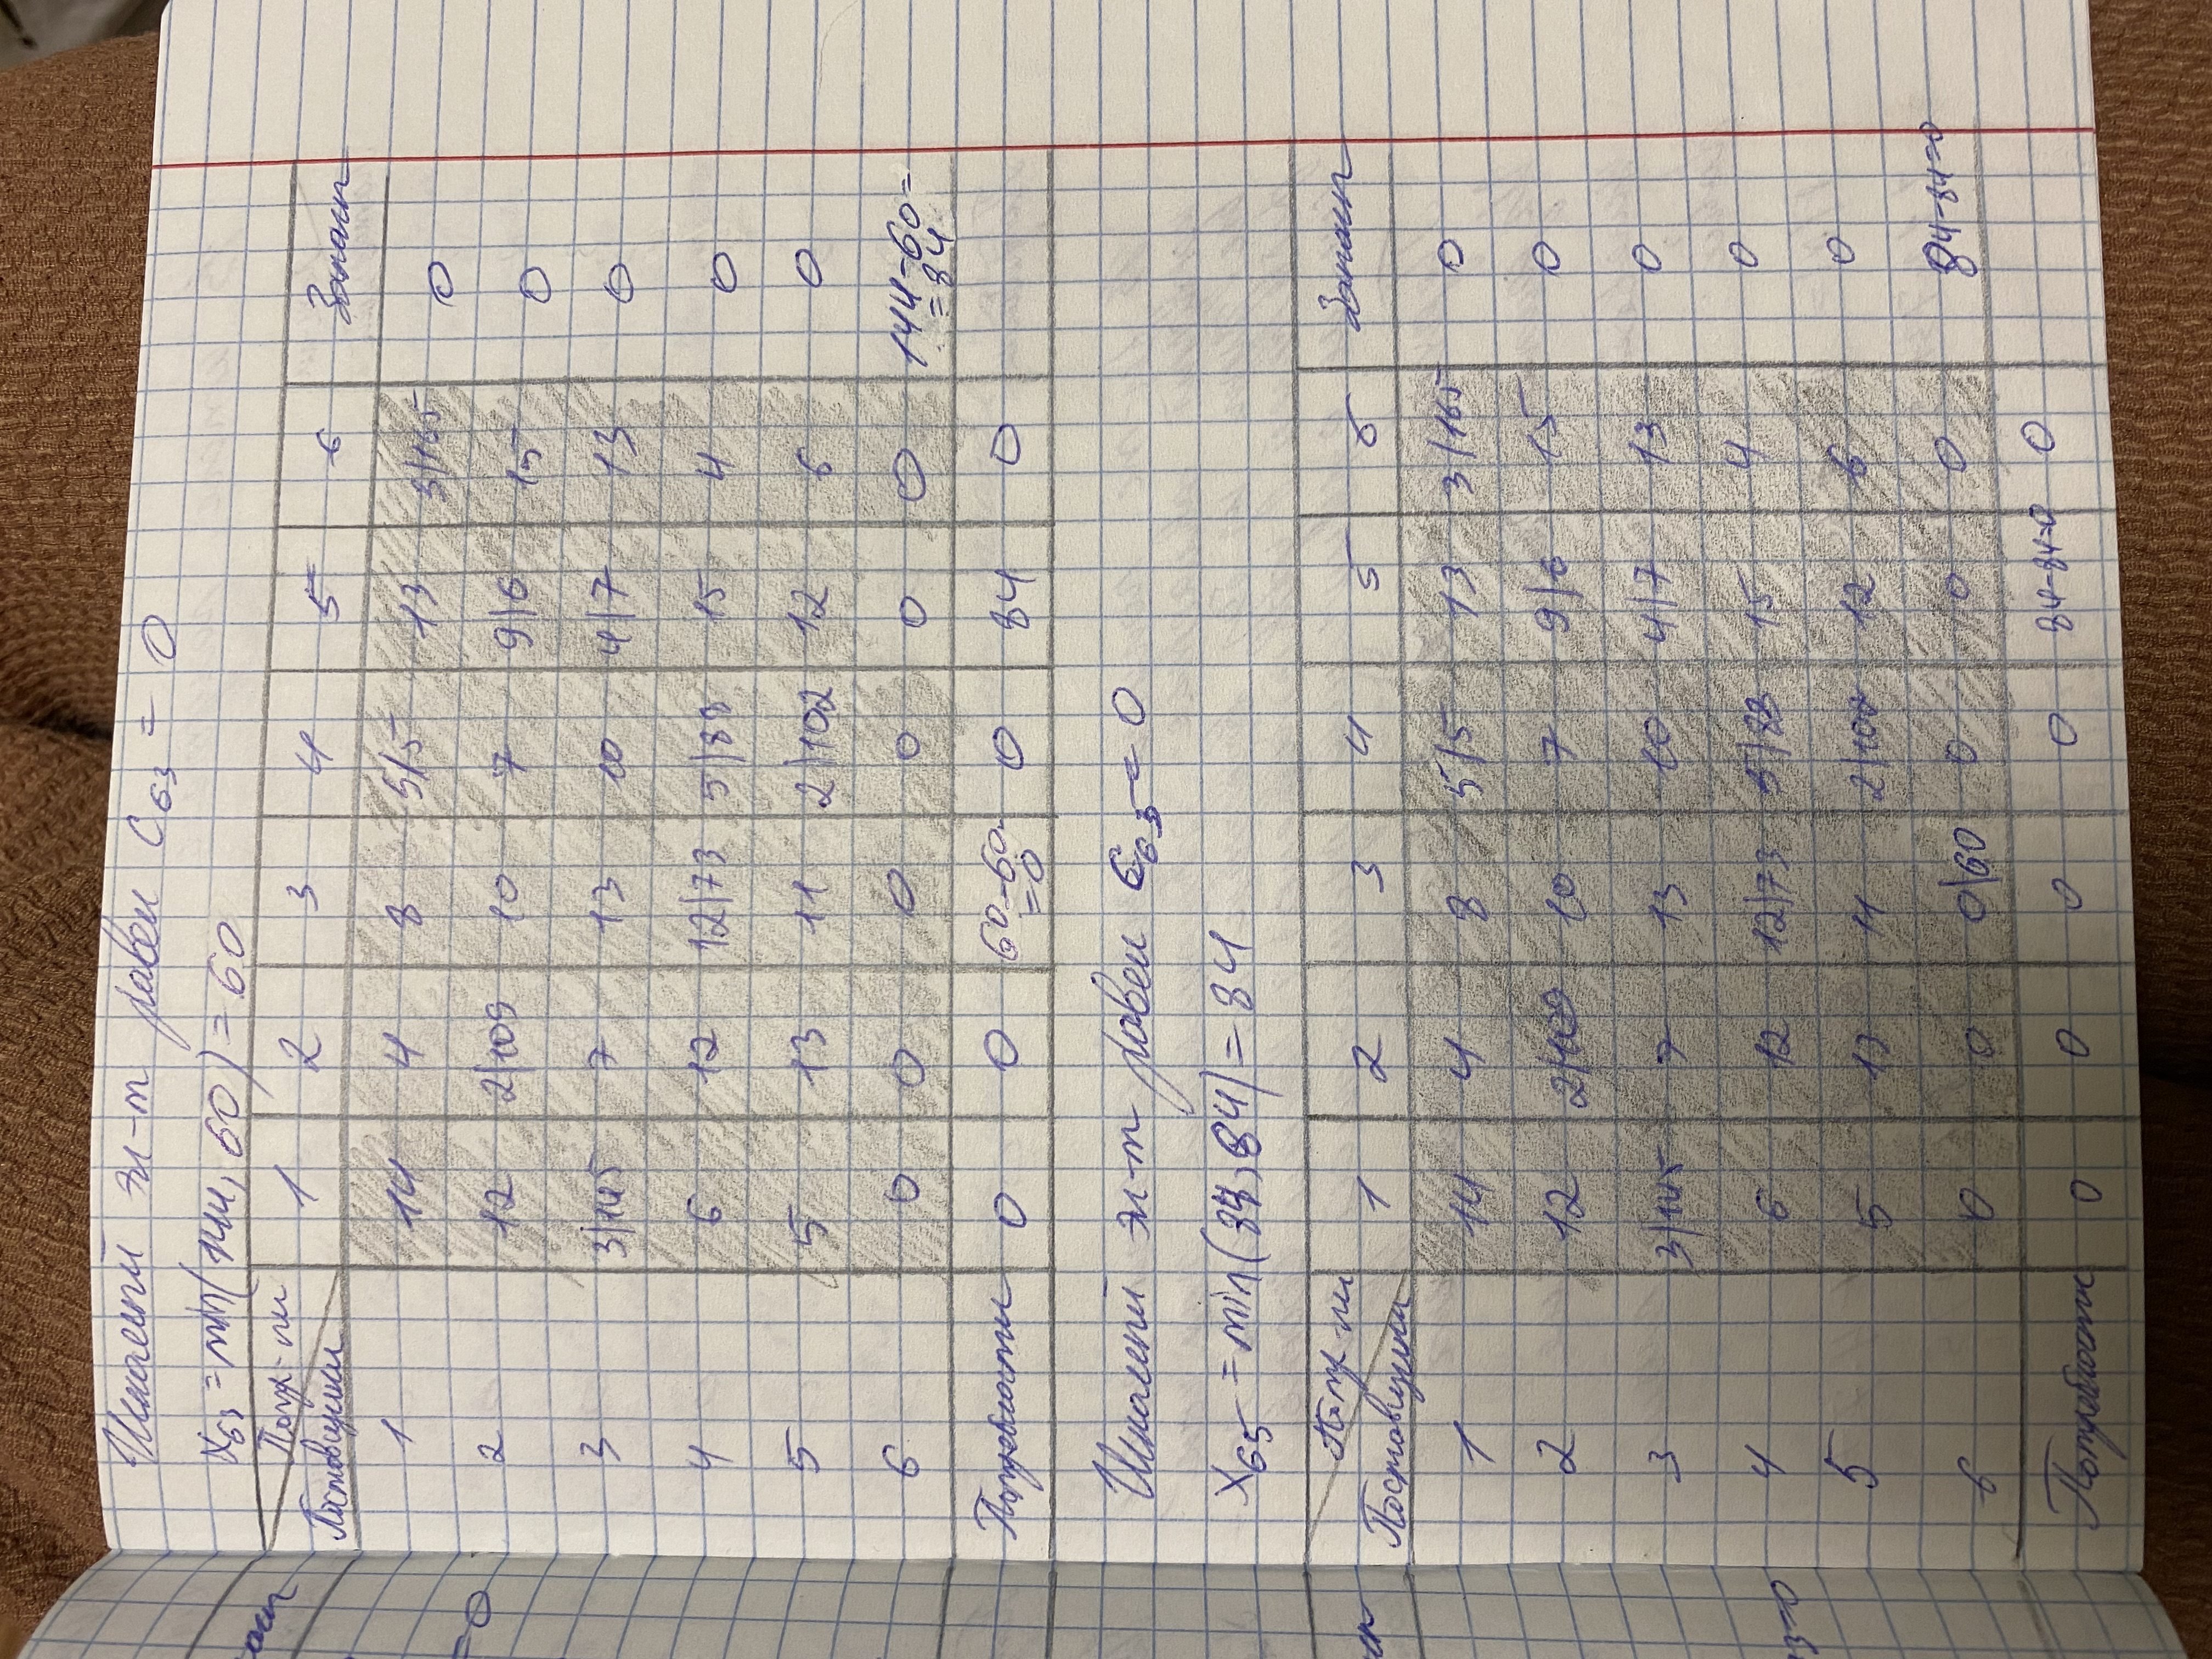 Искомый эл-т равен C₆₃ = 0
X₆₃ = min(144, 60) = 60
Потр-ли
Поставщики 1 2 3 4 5 6 Запасы
1 14 4 8 5|5 13 3|165 0
2 12 2|109 10 7 9|6 15 0
3 3|145 7 13 10 4|7 13 0
4 6 12 12|73 5|88 15 4 0
5 5 13 11 2|102 12 6 0
6 0 0 0 0 0 0 144-60=
=84
Потребности 0 0 60-60= 0 84 0
=0
Искомый эл-т равен C₆₅ = 0
X₆₅ = min(84, 84) = 84
Потр-ли
Поставщики 1 2 3 4 5 6 Запасы
1 14 4 8 5|5 13 3|165 0
2 12 2|109 10 7 9|6 15 0
3 3|145 7 13 10 4|7 13 0
4 6 12 12|73 5|88 15 4 0
5 5 13 11 2|102 12 6 0
6 0 0 0|60 0 0 0 84-84=0
Потребности 0 0 0 0 84-84=0 0
=0
3=0